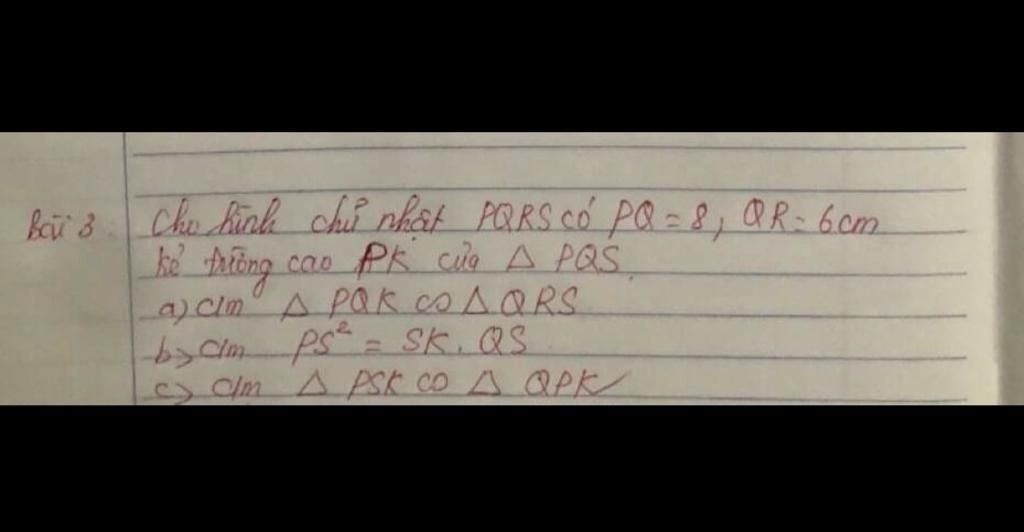 Bài 3: Cho hình chữ nhật PQRS có PQ = 8, QR = 6cm
kẻ đường cao PK của Δ PQS.
a) C/m Δ PQK ∽ Δ QRS
b) C/m PS² = SK. QS
c) C/m Δ PSK ∽ Δ QPK